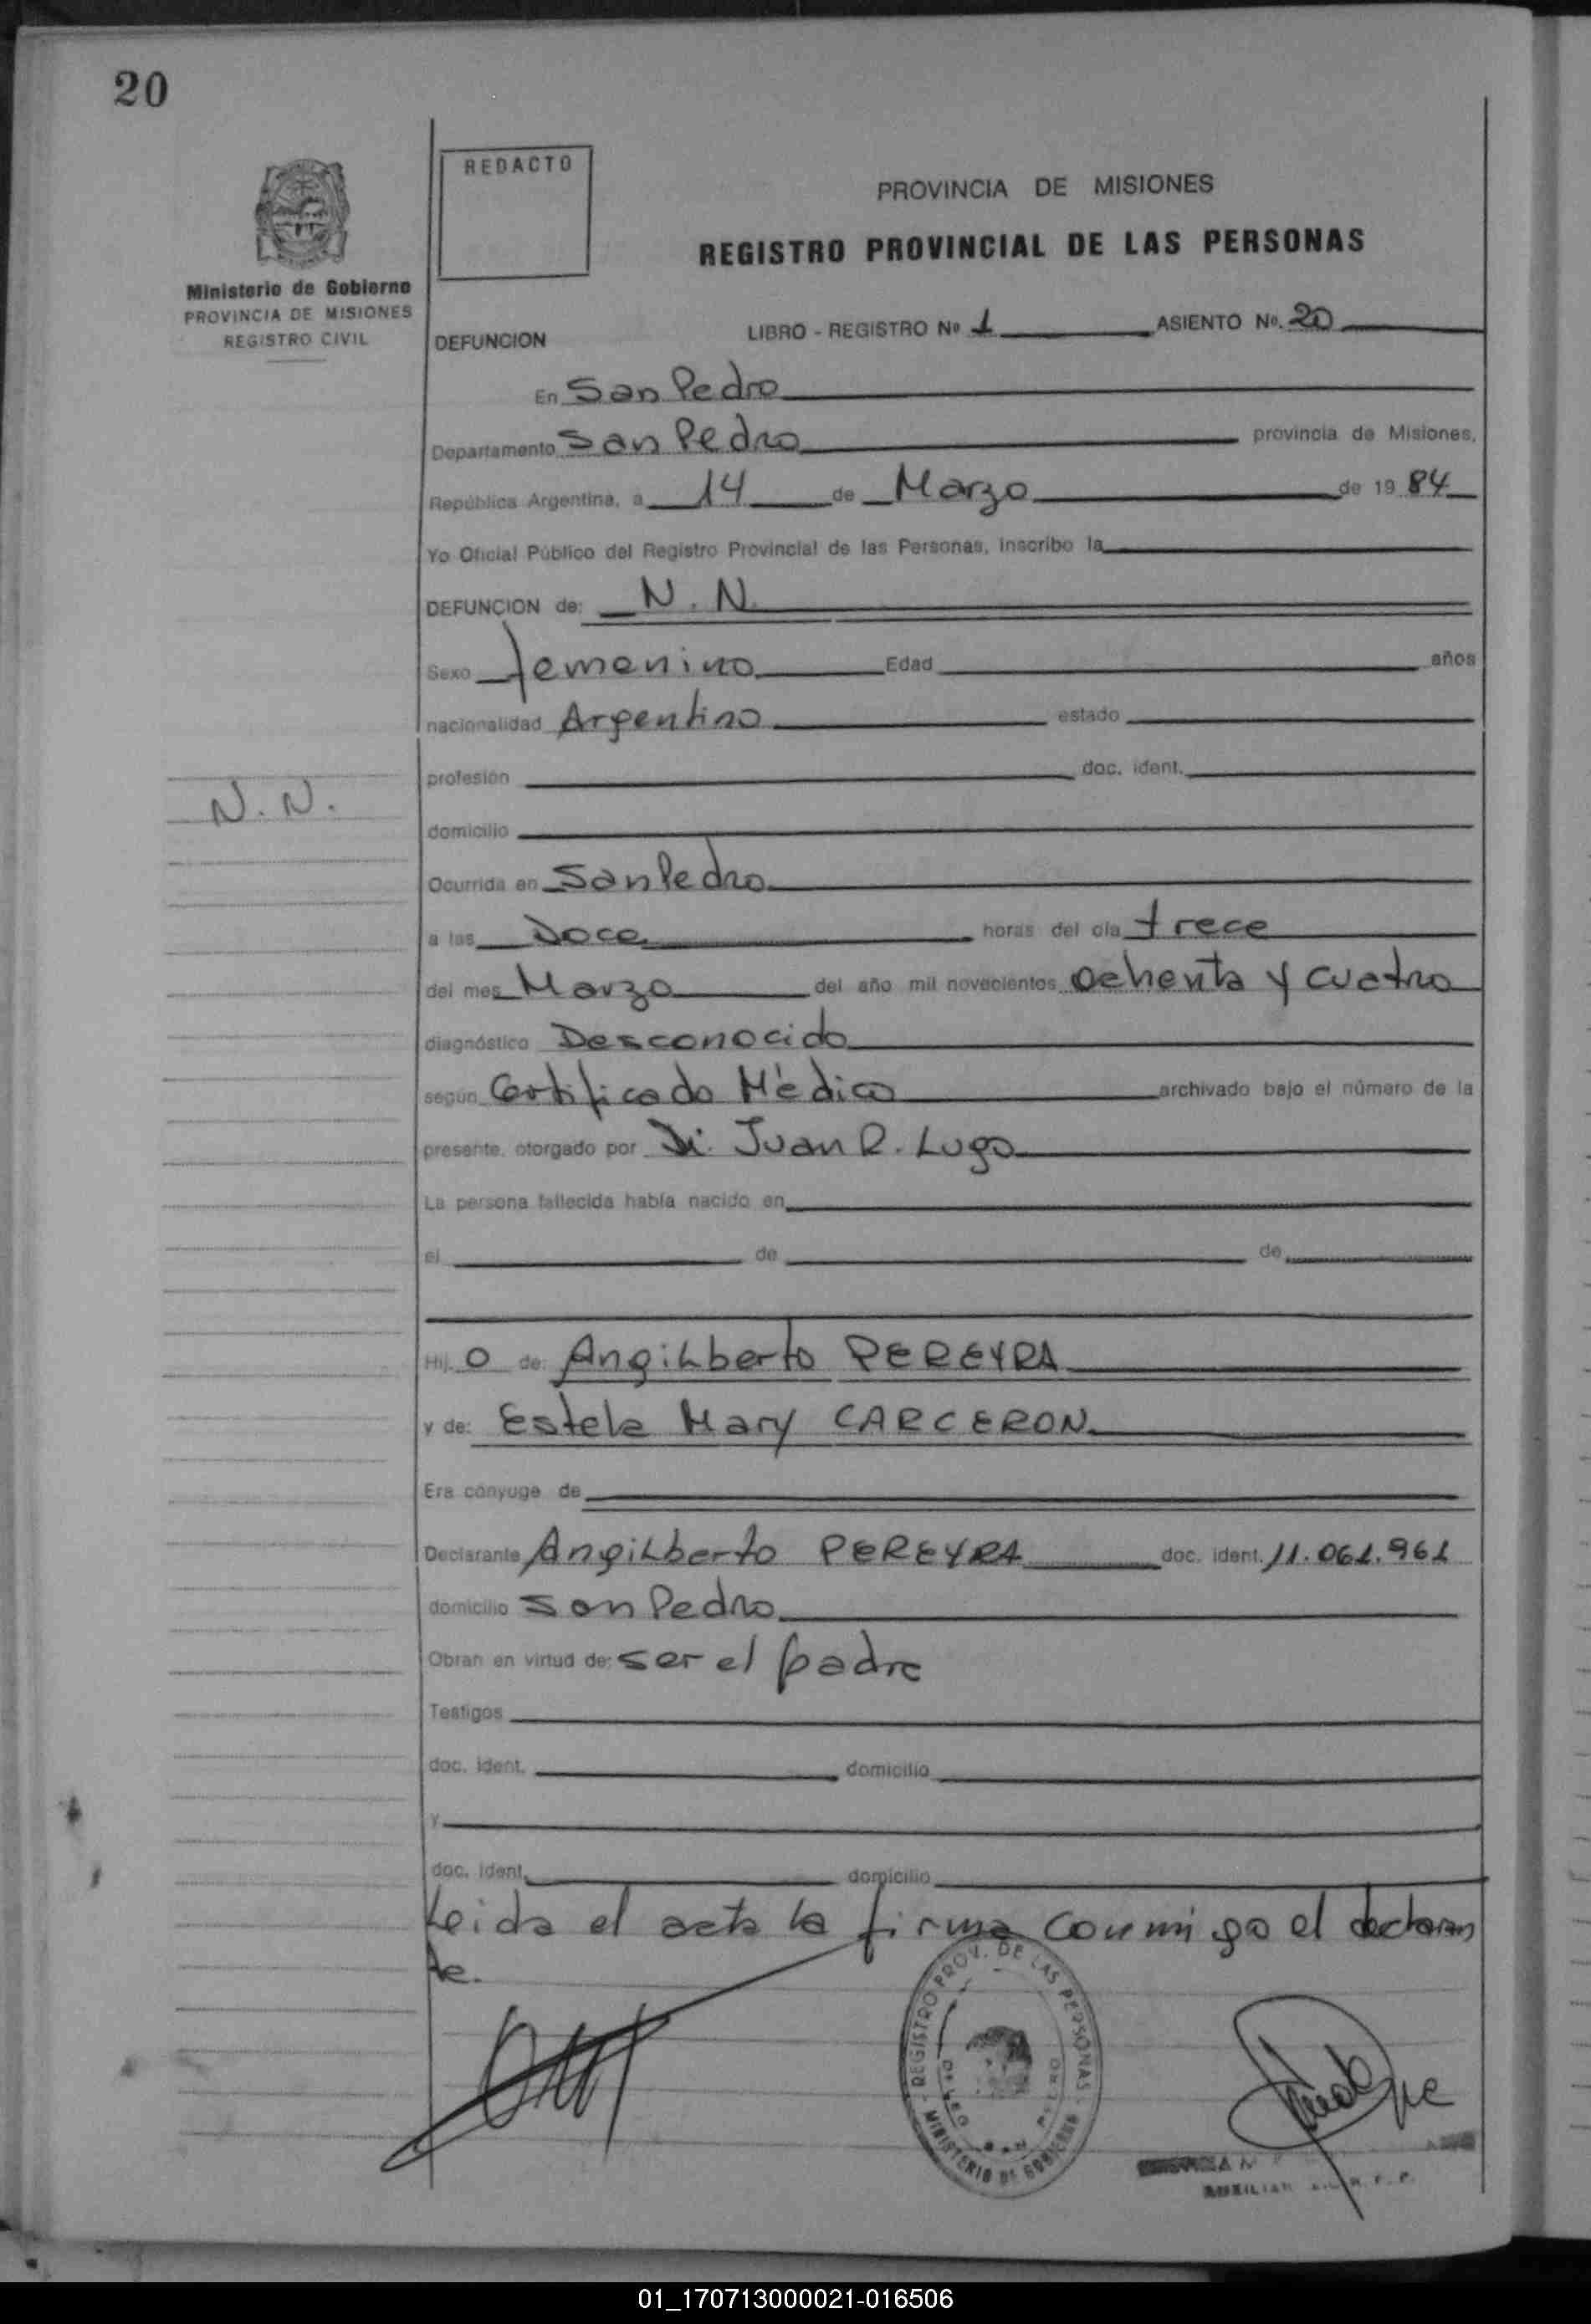 20
REDACTO
PROVINCIA DE MISIONES
REGISTRO PROVINCIAL DE LAS PERSONAS
Ministerio de Gobierno
PROVINCIA DE MISIONES
REGISTRO CIVIL
DEFUNCION LIBRO - REGISTRO Nº 1 ASIENTO Nº. 20
En San Pedro
Departamento San Pedro provincia de Misiones,
República Argentina, a 14 de Marzo de 19 84
Yo Oficial Público del Registro Provincial de las Personas, inscribo la
DEFUNCION de: N. N.
Sexo femenino Edad años
nacionalidad Argentino estado
profesión doc. ident.
N. N.
domicilio
Ocurrida en San Pedro
a las Doce horas del día trece
del mes Marzo del año mil novecientos Ochenta y cuatro
diagnóstico Desconocido
según Certificado Médico archivado bajo el número de la
presente, otorgado por Dr. Juan R. Lugo
La persona fallecida había nacido en
el de de
Hij o de: Angilberto PEREYRA
y de: Estela Mary CARCERON
Era cónyuge de
Declarante Angilberto PEREYRA doc. ident. 11.061.961
domicilio San Pedro
Obran en virtud de: ser el padre
Testigos
doc. ident. domicilio
y
doc. ident. domicilio
Leida el acta la firma conmigo el declaran
te.
REGISTRO PROV. DE LAS PERSONAS
MINISTERIO DE GOBIERNO
AUXILIAR
01_170713000021-016506